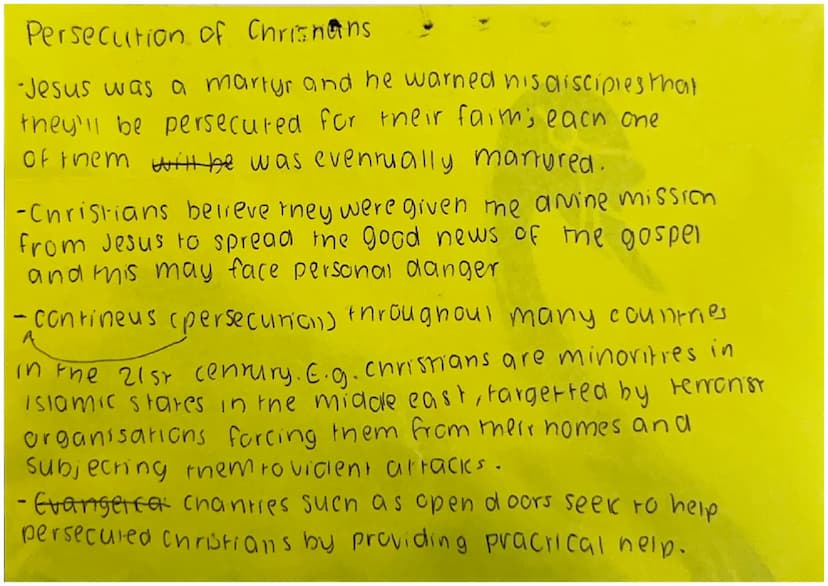 Persecution of Christians
-Jesus was a martyr and he warned his disciples that
they'll be persecuted for their faith; each one
of them will be was eventually martured.
-Christians believe they were given the divine mission
from Jesus to spread the good news of the gospel
and this may face personal danger
-contineus (persecution) throughout many countries
in the 21st century. E.g. christians are minorities in
islamic states in the middle east, targetted by terrorist
organisations forcing them from their homes and
subjecting them to violent attacks.
-Evangelcal charities such as open doors seek to help
persecuted christians by providing practical help.